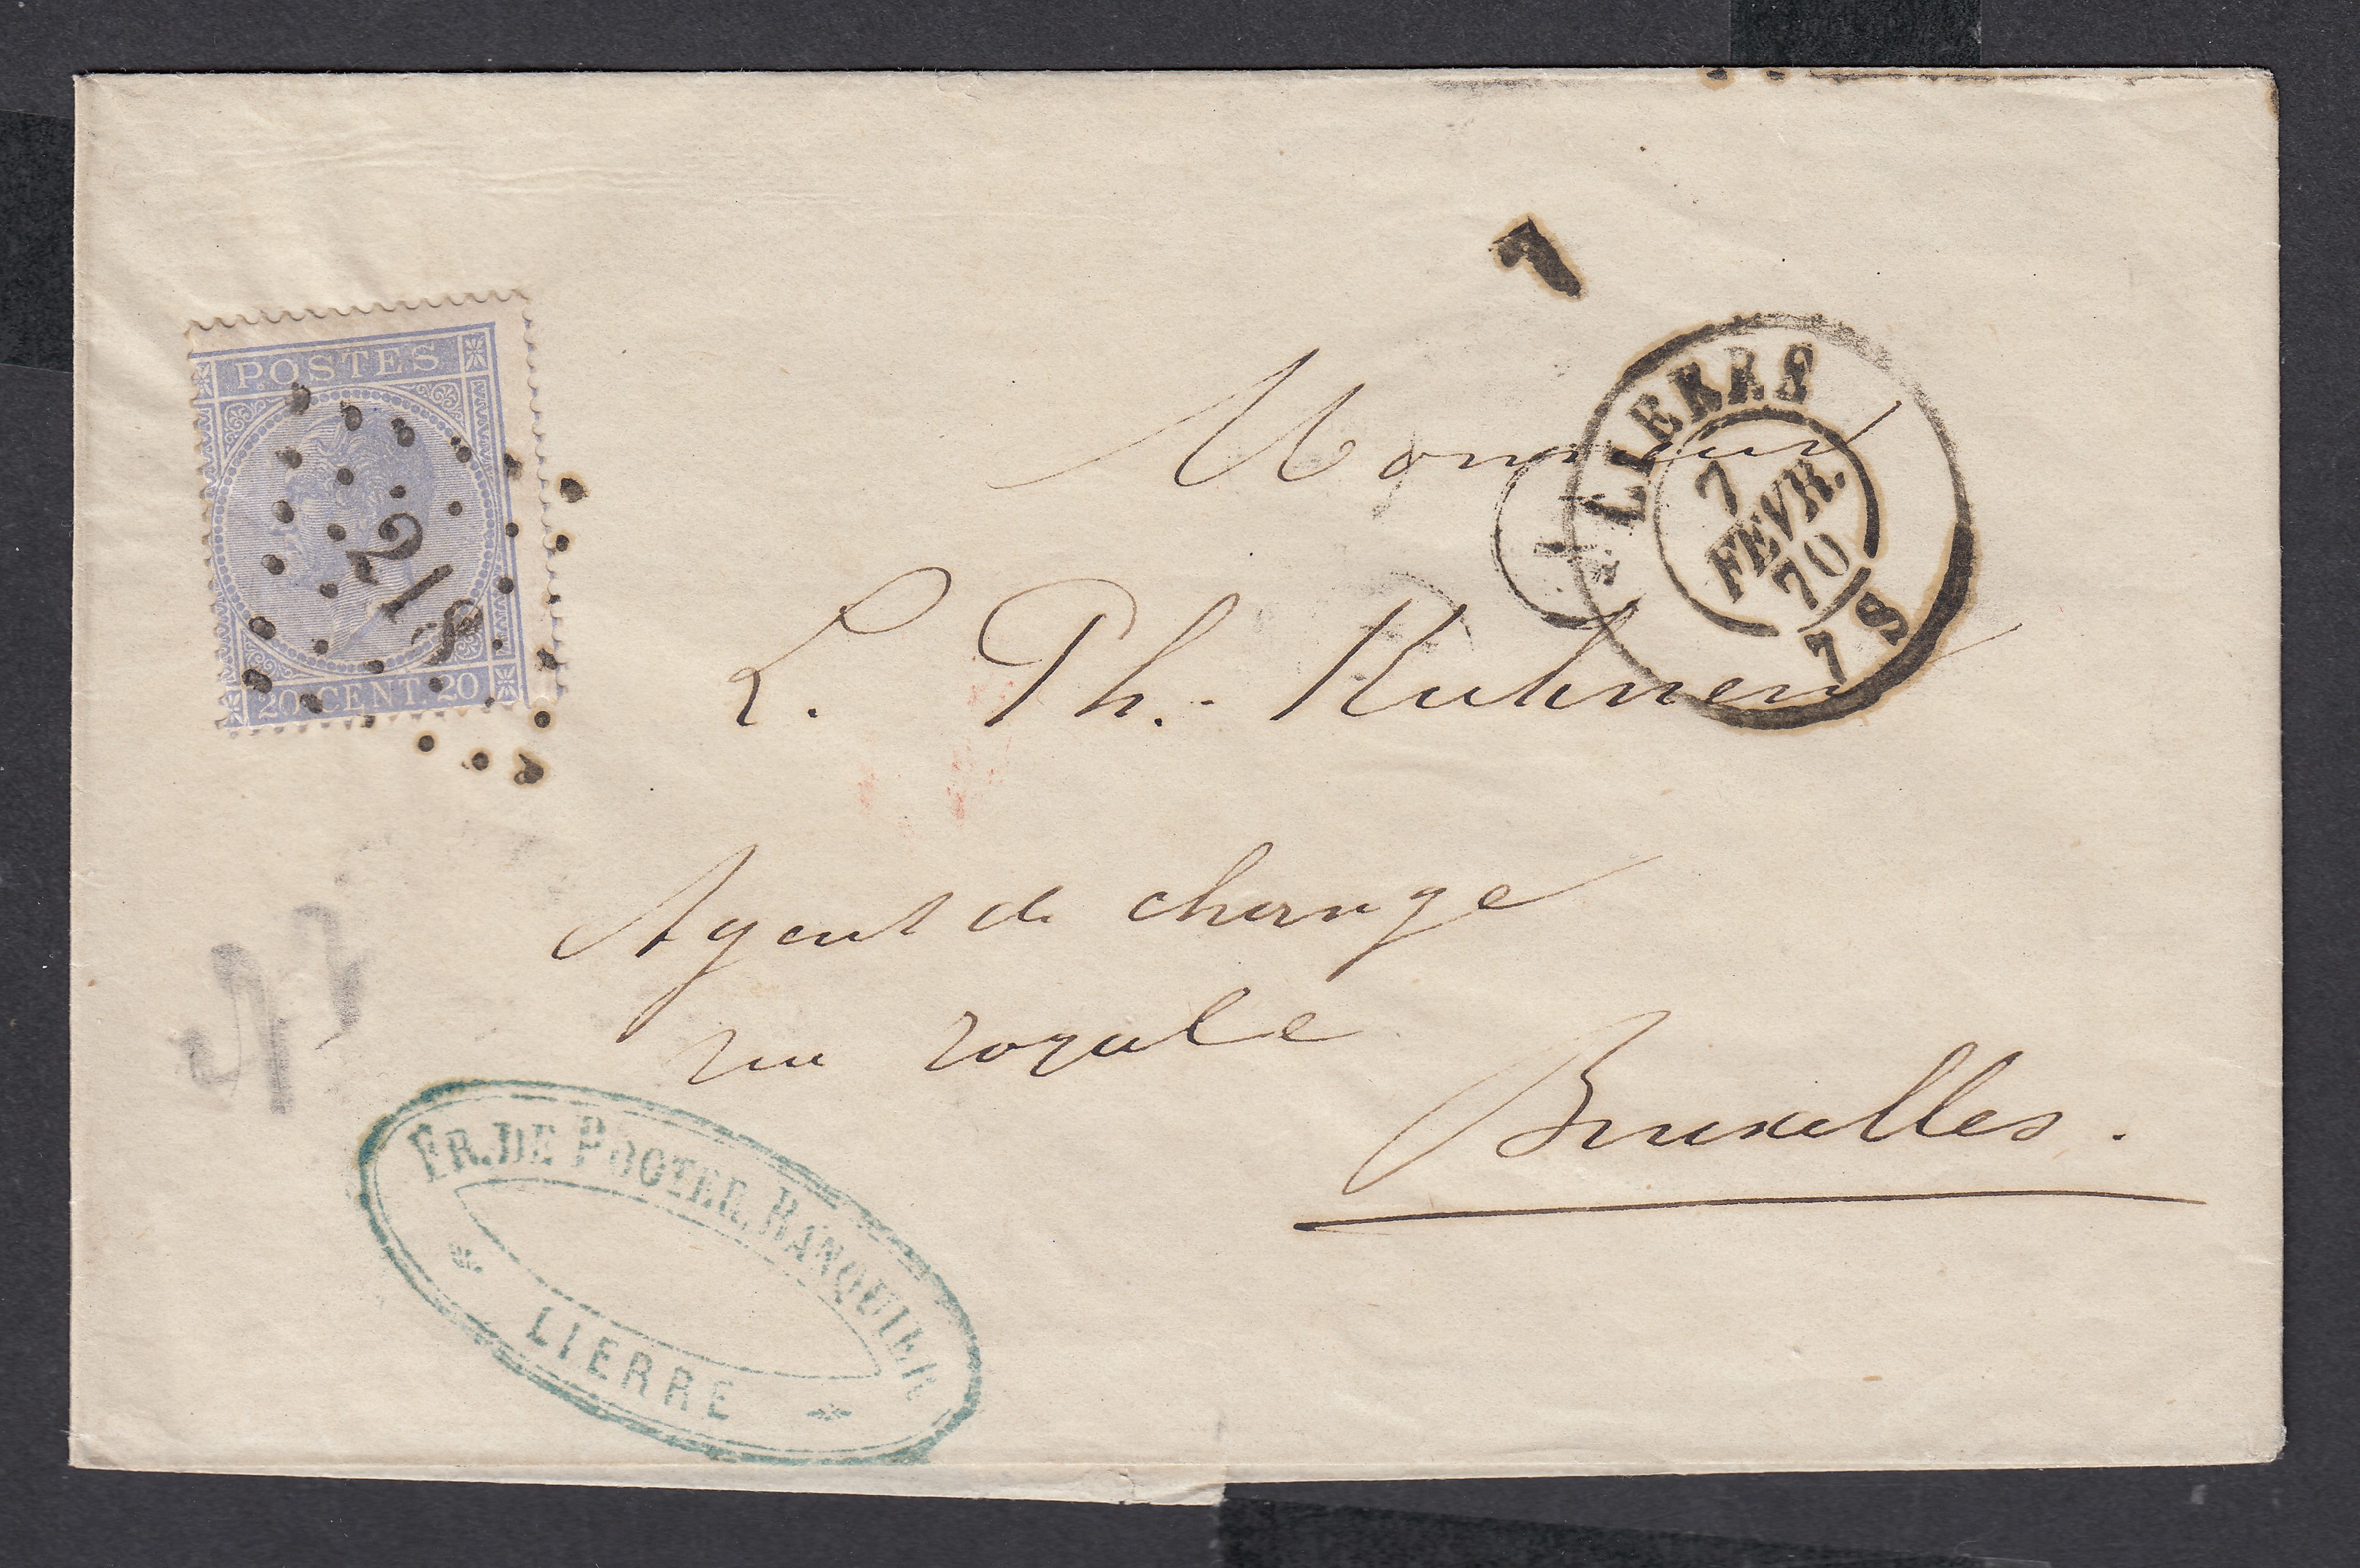 POSTES
218
20 CENT. 20
7
LIERRE
7
FEVR.
70
7 S
Monsieur
L. Ph. Kuhnen
Agent de change
rue royale
Bruxelles.
FR. DE POOTER, BANQUIER
LIERRE